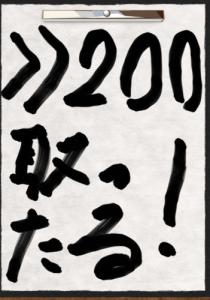 >>200
取っ
たる!